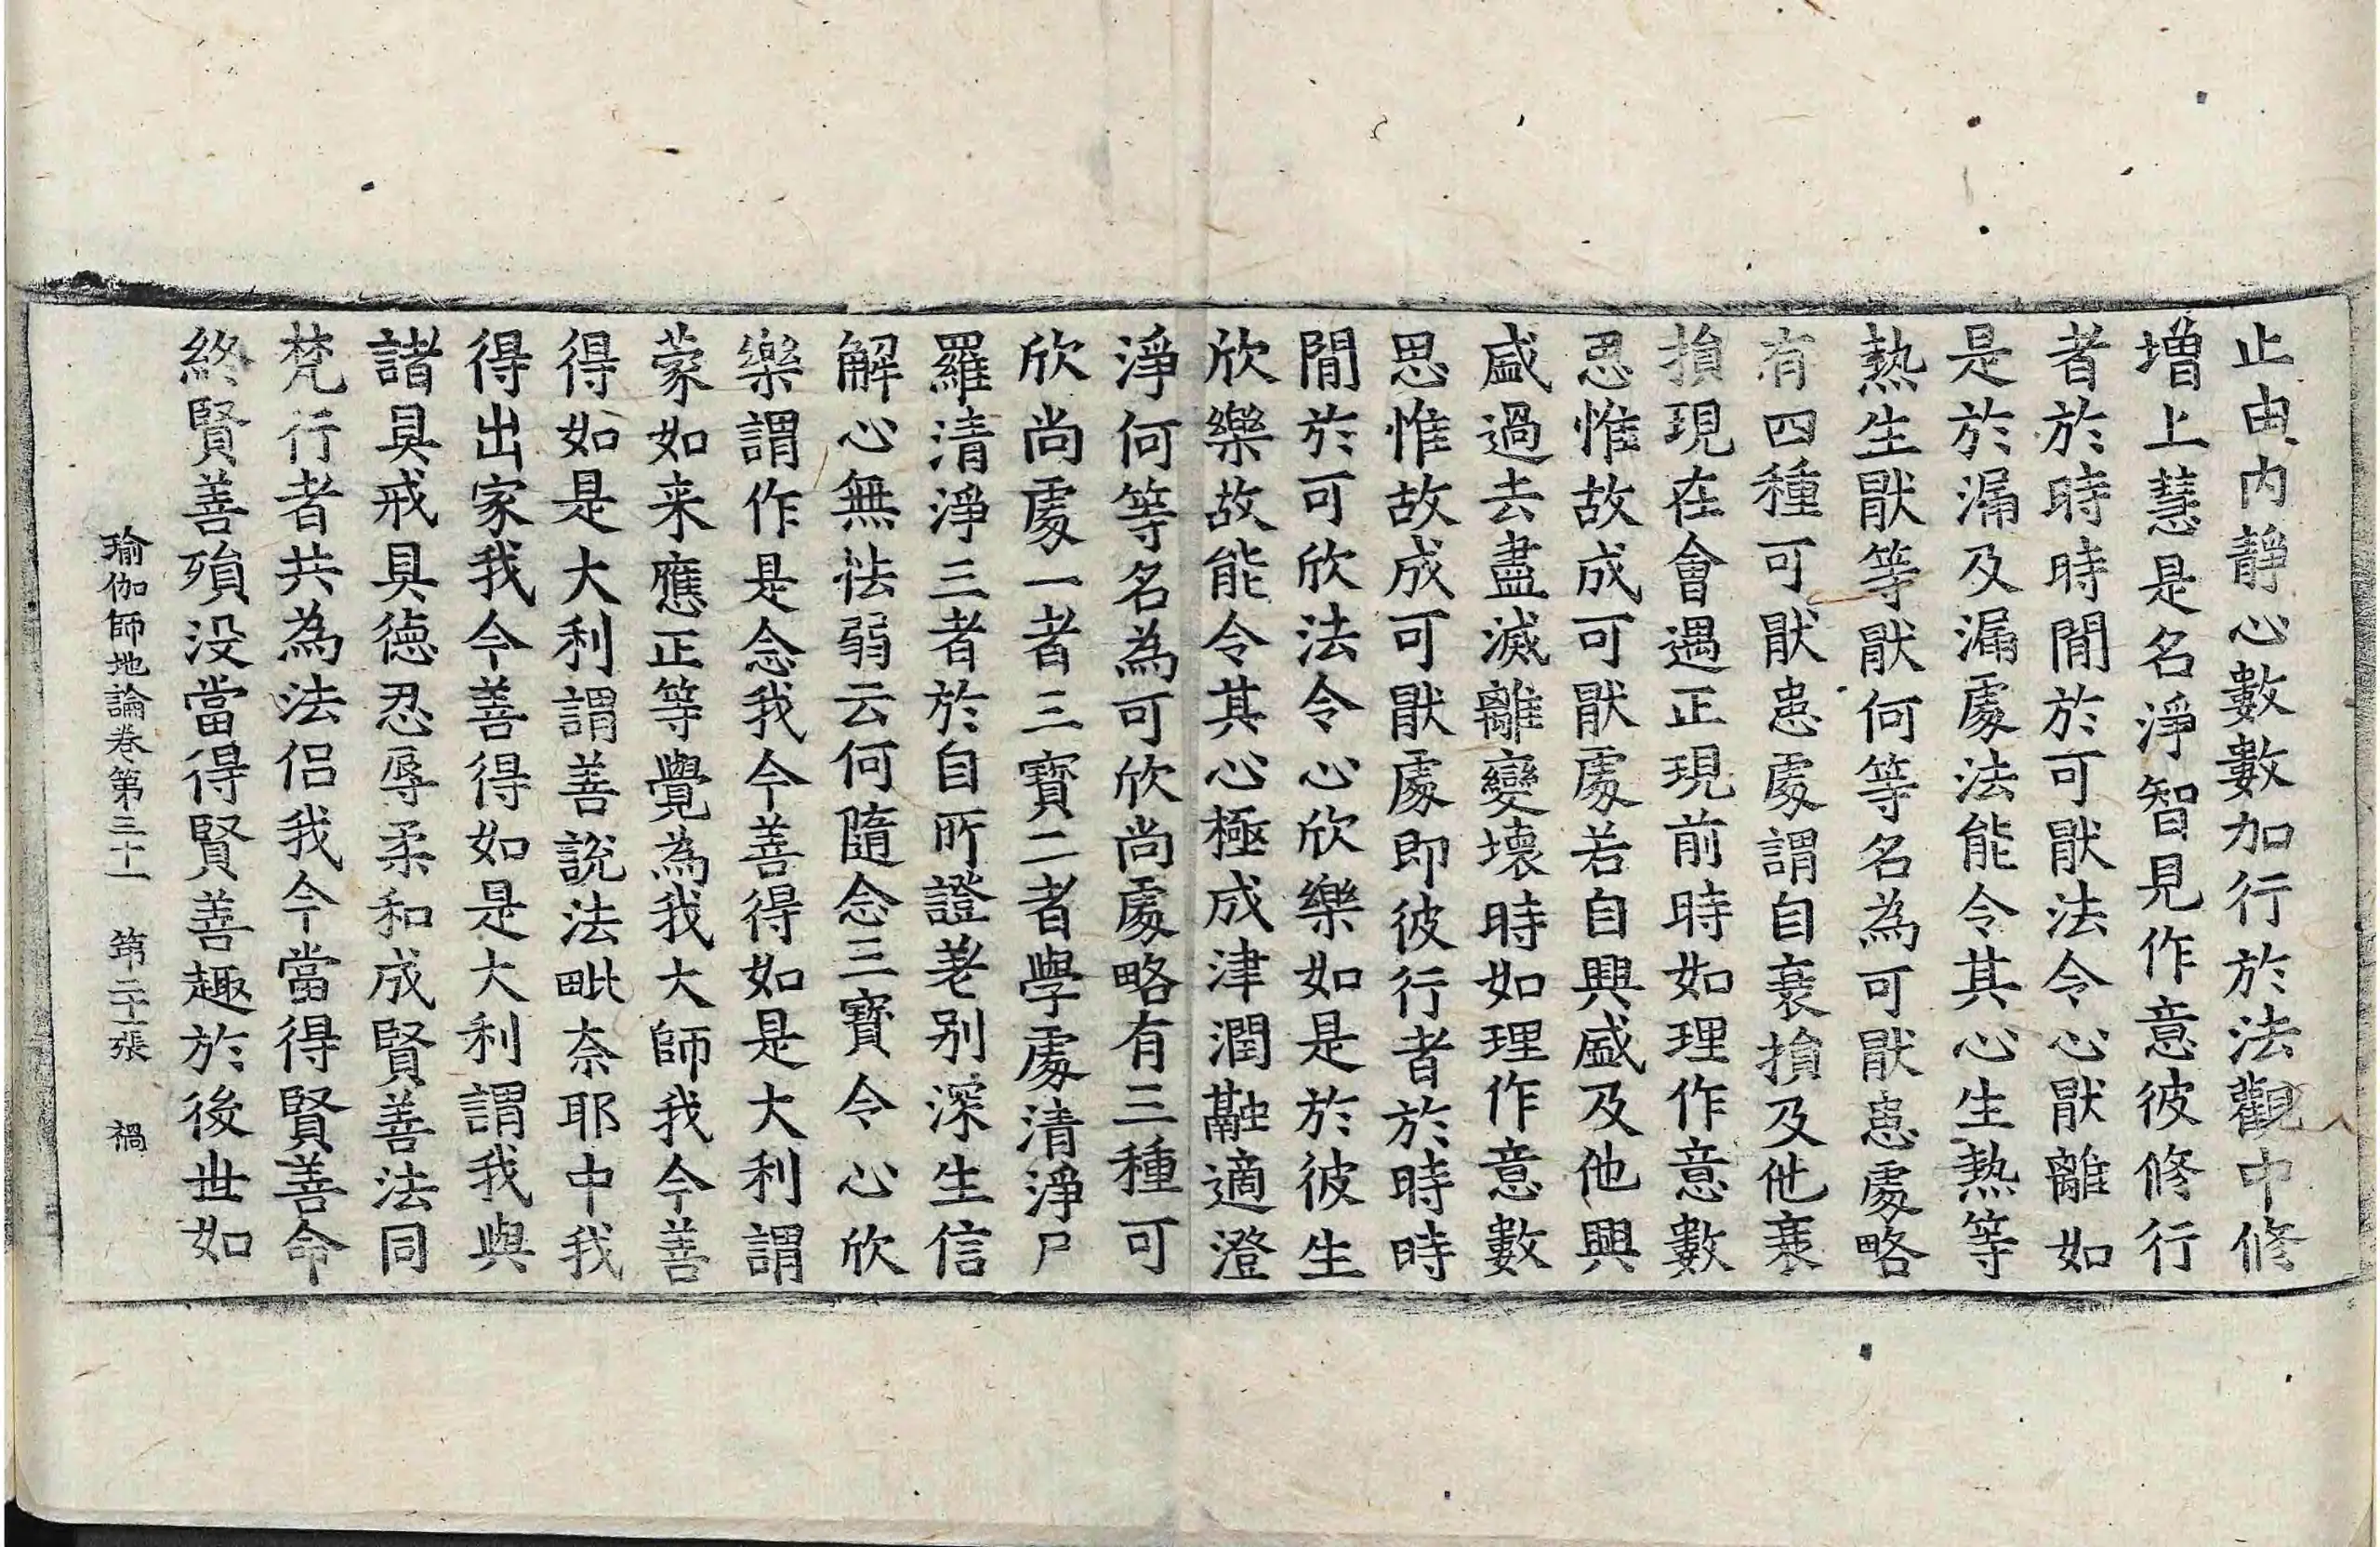 止由內靜心數數加行於法觀中修
増上慧是名淨智見作意彼修行
者於時時閒於可猒法令心猒離如
是於漏及漏處法能令其心生熱等
熱生猒等猒何等名為可猒患處略
有四種可猒患處謂自衰損及他衰
損現在會遇正現前時如理作意數
思惟故成可猒處若自興盛及他興
盛過去盡滅離變壞時如理作意數
思惟故成可猒處即彼行者於時時
閒於可欣法令心欣樂如是於彼生
欣樂故能令其心極成津潤融適澄
淨何等名為可欣尚處略有三種可
欣尚處一者三寶二者學處清淨尸
羅清淨三者於自所證差別深生信
解心無怯弱云何隨念三寶令心欣
樂謂作是念我今善得如是大利謂
蒙如来應正等覺為我大師我今善
得如是大利謂善說法毗奈耶中我
得出家我今善得如是大利謂我與
諸具戒具德忍辱柔和成賢善法同
梵行者共為法侶我今當得賢善命
終賢善殞没當得賢善趣於後世如
瑜伽師地論卷第三十一　第二十一張　禍